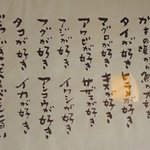 ガキの頃から魚が
タイが好き ヒラメが好き
マグロが好き キスが好き
アワビが好き サザエが好き
アジが好き イワシが好き
フグが好き アンコウが好き
タコが好き イカが好き